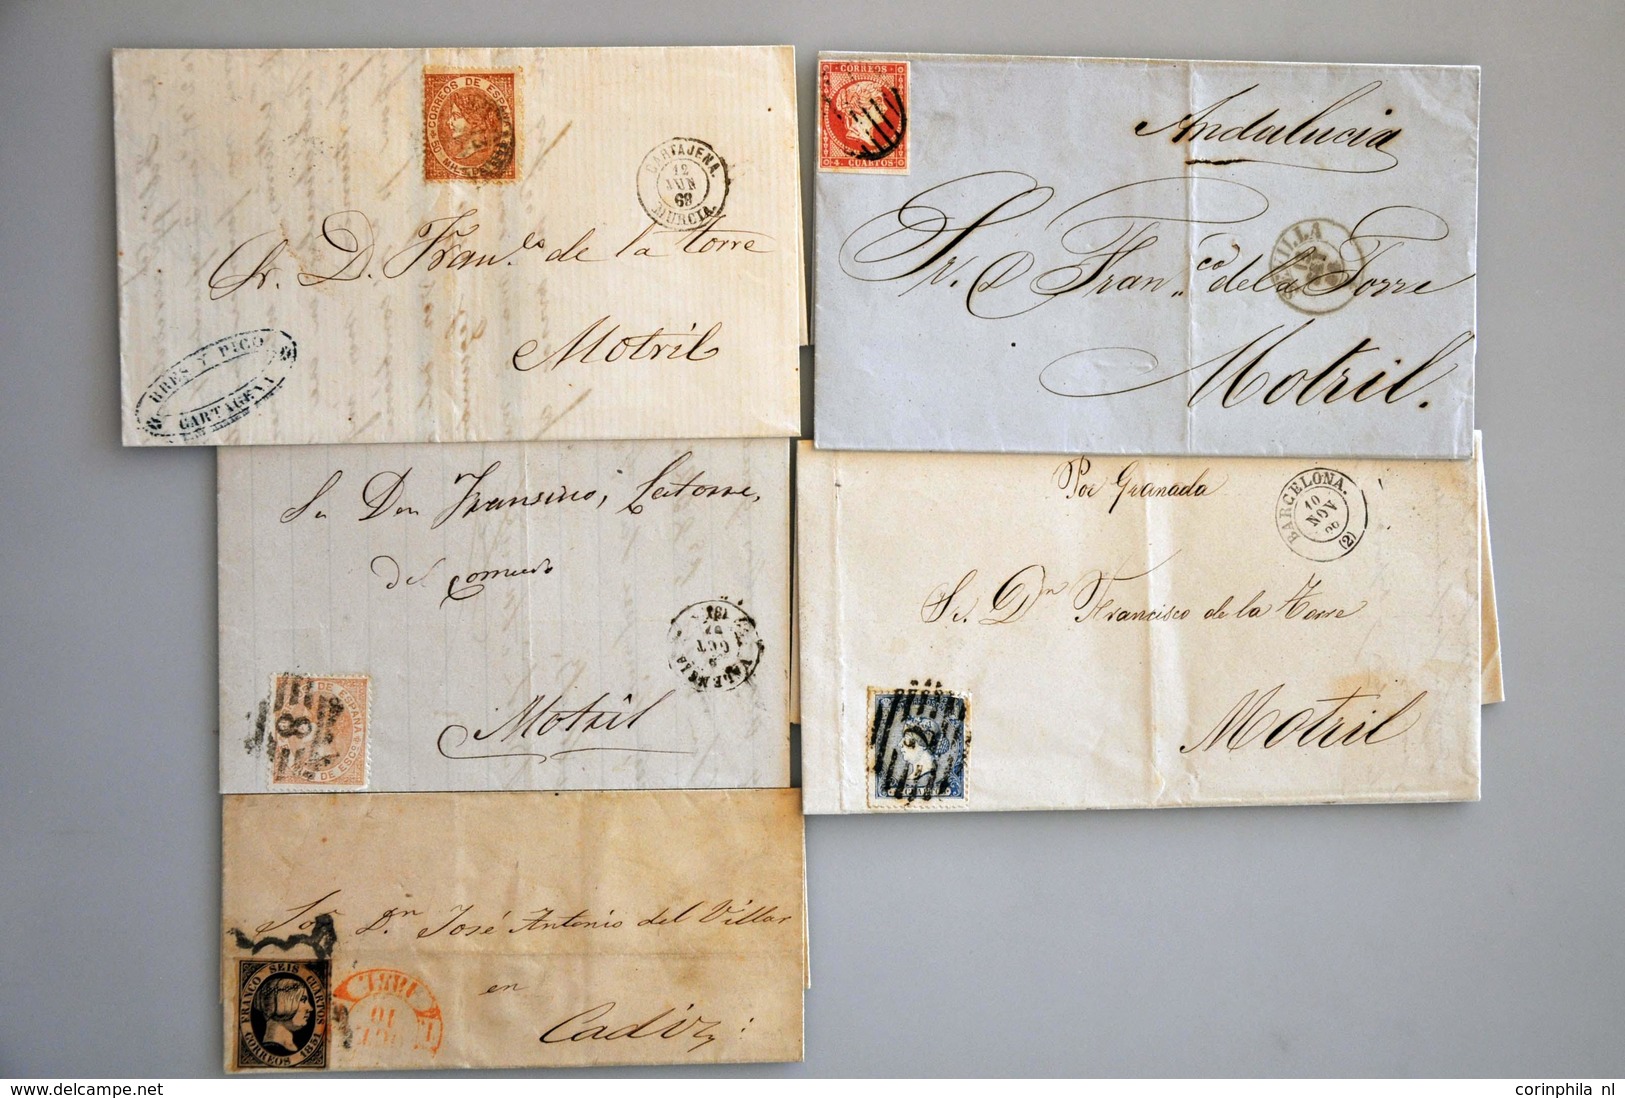 CORREOS DE ESPAÑA
50 MIL.S DE ESCUDO
CARTAJENA.
12
JUN
68
MURCIA.
Sr. D. Fran.co de la torre
Motril
BRES Y PICO
CARTAGENA
CORREOS
4. CUARTOS
Andalucia
SEVILLA
Sr. D Fran.co de la Torre
Motril.
Sr Don Fransisco, Latorre,
del Comercio
VALENCIA
OCT
DE ESPAÑA
DE ESCO
8
Motril
Por Granada
BARCELONA.
10
NOV
66
(2)
Sr. Dn Francisco de la Torre
2
Motril
Sor Dn José Antonio del Villar
en
Cadiz
FRANCO SEIS CUARTOS
CORREOS 1851
corinphila nl